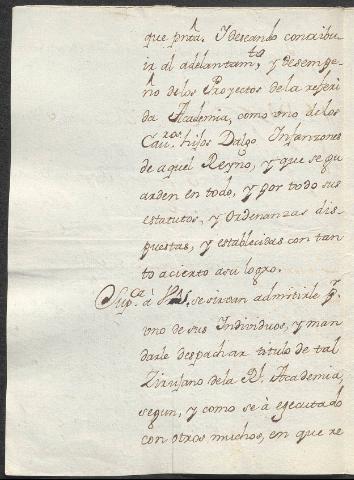 que pnta. I deseando contribu-
ir al adelantamto, y desempe-
ño de los Proyectos de la referi
da Academia, como vno de los
Cavros hijos Dalgo Infanzones
de aquel Reyno, y que se gu
arden en todo, y por todo sus
estatutos, y Ordenanzas dis-
puestas, y establecidas con tan
to acierto asu logro.
Supca à VS. se sirvan admitirle pr.
vno de sus Individuos, y man
darle despachar titulo de tal
Zirujano dela Rl. Academia,
segun, y como se à egecutado
con otros muchos, en que re